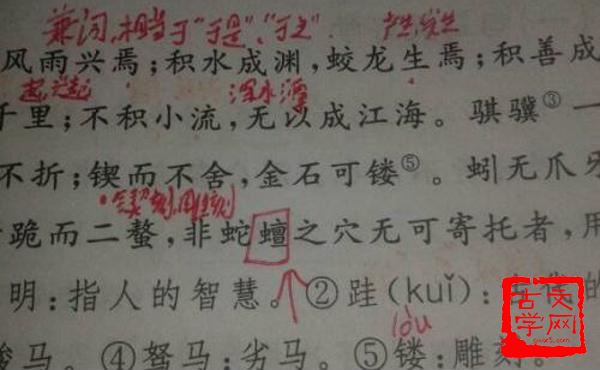 兼词,相当于"于是"、"于之". 产生,发生
风雨兴焉;积水成渊,蛟龙生焉;积善成
起,兴起 深水潭
千里;不积小流,无以成江海。骐骥③一
不折;锲而不舍,金石可镂⑤。蚓无爪牙
跪而二螯,非蛇蟺之穴无可寄托者,用
明:指人的智慧。②跬(kuǐ):古代的
lòu
骏马。④驽马:劣马。⑤镂:雕刻。
古文
学网